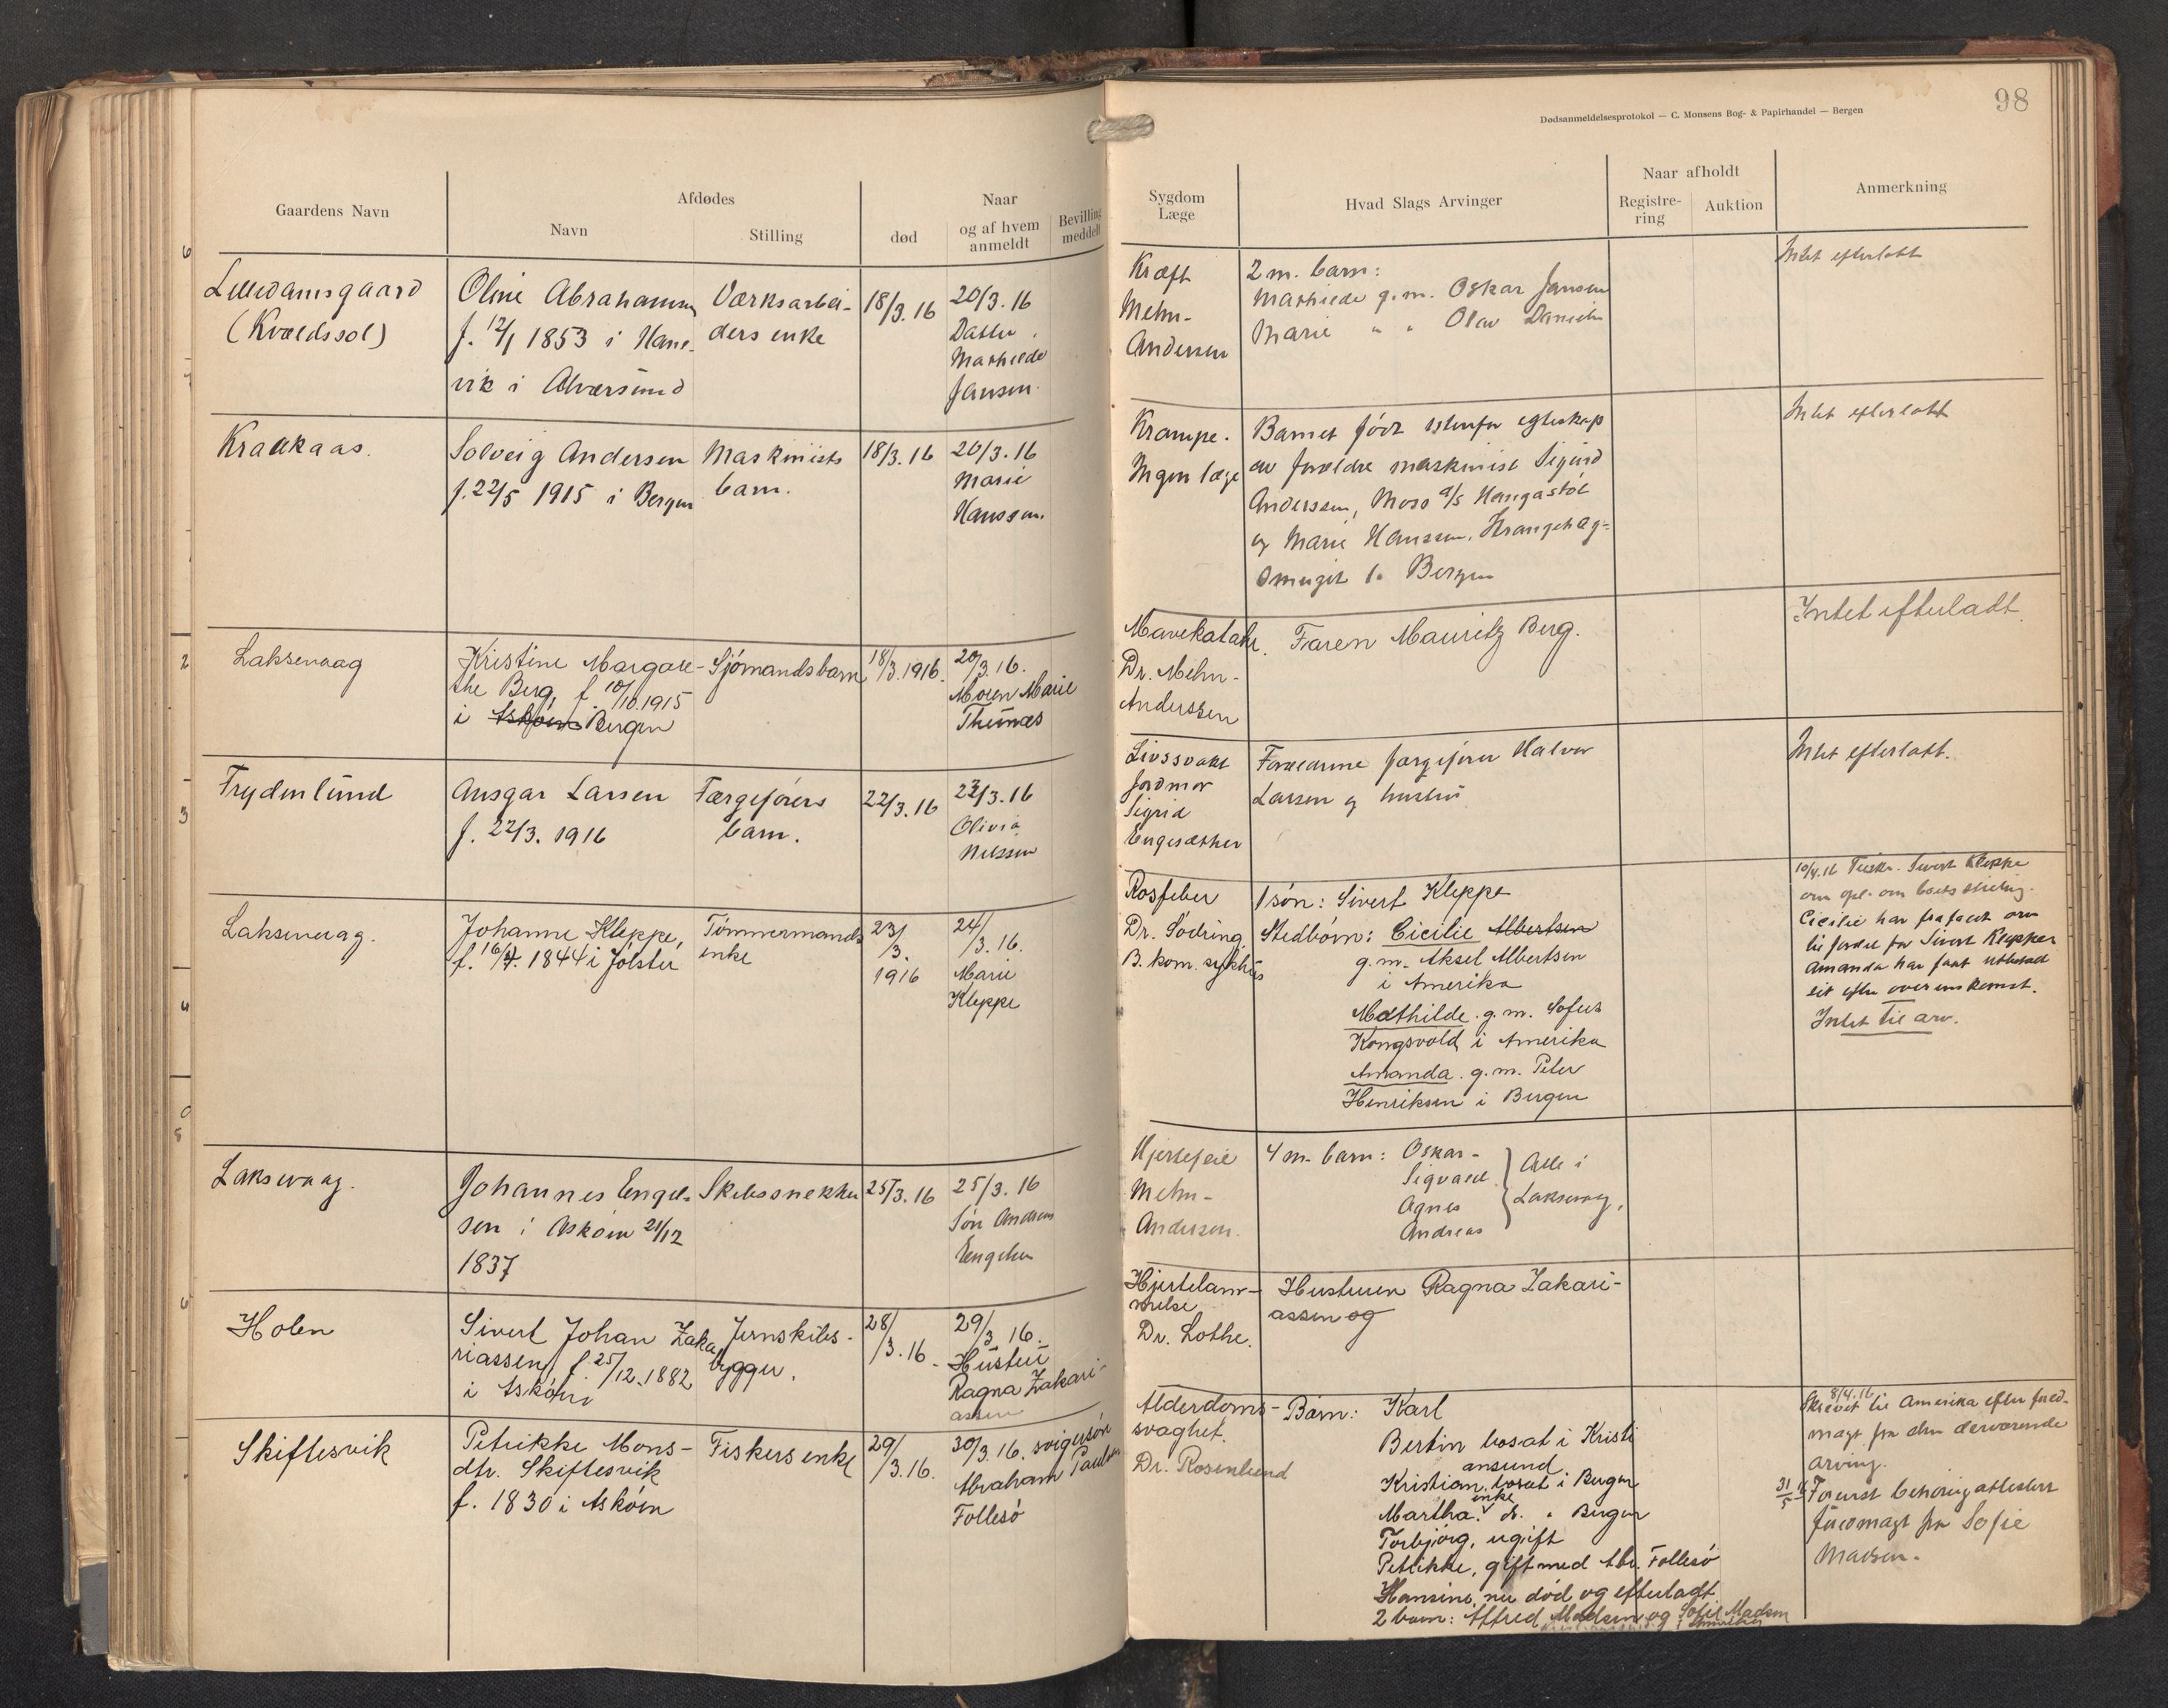 98
Dødsanmeldelsesprotokol — C. Monsens Bog- & Papirhandel — Bergen
Gaardens Navn
Afdødes
Navn
Stilling
død
Naar
og af hvem
anmeldt
Bevilling
meddelt
Sygdom
Læge
Hvad Slags Arvinger
Naar afholdt
Registre-
ring
Auktion
Anmerkning
Lillidamsgaard
(Kvældssol)
Oline Abrahamsen
f. 12/1 1853 i Hane-
vik i Alversund
Værksarbei-
ders enke
18/3. 16
20/3. 16
Datter
Mathilde
Jansen.
Kræft
Mehn-
Andersen
2 m. barn:
Mathilde g.m. Oskar Jansen
Marie " " Olav Danielsen
Intet efterlatt
Kraakaas.
Solveig Andersen
f. 22/5 1915 i Bergen
Maskinists
barn.
18/3. 16
20/3. 16
Marie
Hanssen.
Krampe.
Ingen læge
Barnet født utenfor egteskap
av forældre maskinist Sigurd
Anderssen, Moss a/s Haugastøl
og Marie Hanssen,
smuget 1. Bergen
Intet efterlatt
Laksevaag
Kristine Margare-
the Berg, f. 10/10.1915
i Askøen Bergen
Sjømandsbarn
18/3.1916.
20/3.16.
Moren Marie
Thunæs
Mavekatahr.
Dr. Mehn-
Anderssen
Faren Mauritz Berg.
Intet efterladt
Frydenlund
Ansgar Larsen
f. 22/3. 1916
Færgeførers
barn.
22/3. 16
23/3. 16
Olivia
Nilssen
Livssvakt
Jordmor
Sigrid
Engesæther
Forældrene færgefører Halvor
Larsen og hustru
Intet efterlatt.
Laksevaag.
Johanne Kleppe,
f. 16/4. 1844 i Jølster
Tømmermands
enke
23/
3.
1916
24/
3. 16.
Marie
Kleppe
Rosfeber
Dr. Sødring
B. kom. sykhus
1 søn: Sivert Kleppe
Stedbørn: Cicilie Albertsen
g.m. Aksel Albertsen
i Amerika
Mathilde g.m. Sofus
Kongsvold i Amerika
Amanda. g.m. Peter
Henriksen i Bergen
10/4.16 Tilskr. Sivert Kleppe
om opl. om boets stilling.
Cicilie har frafaldt arv
til fordel for Sivert Kleppe
Amanda har faat utbetalt
sit efter overenskomst.
Intet til arv.
Laksevaag.
Johannes Engel-
sen i Askøen 21/12
1837
Skibssnekker
25/3. 16
25/3. 16
Søn Andreas
Engelsen
Hjertefeil
Mehn-
Andersen.
4 m. barn: Oskar -
Sigvald
Agnes
Andreas
Alle i
Laksevaag.
Holen
Sivert Johan Zaka-
riassen, f. 25/12.1882
i Askøen
Jernskibs-
bygger.
28/
3.16.
29/
3 16.
Hustru
Ragna Zakari-
assen
Hjertelam-
melse
Dr. Lothe.
Hustruen Ragna Zakari-
assen og
Skiftesvik
Petrikke Mons-
dtr. Skiftesvik
f. 1830 i Askøen
Fiskers enke
29/
3.16.
30/3.16. svigersøn
Abraham Paulsen
Follesø
Alderdoms-
svaghet.
Dr. Rosenlund
Børn: Karl
Bertin bosat i Kristi
ansund
Kristian, bosat i Bergen
enke
Martha. d. " Bergen
Torbjørg, ugift
Petrikke, gift med Abr. Follesø
Hansine, nu død og efterladt
2 barn: Alfred Madsen og Sofie Madsen
i Amerika
8/4.16
Skrevet til Amerika efter fuld-
magt fra den derværende
arving.
31/5 16 Forevist behørig attestert
fuldmagt fra Sofie
Madsen.